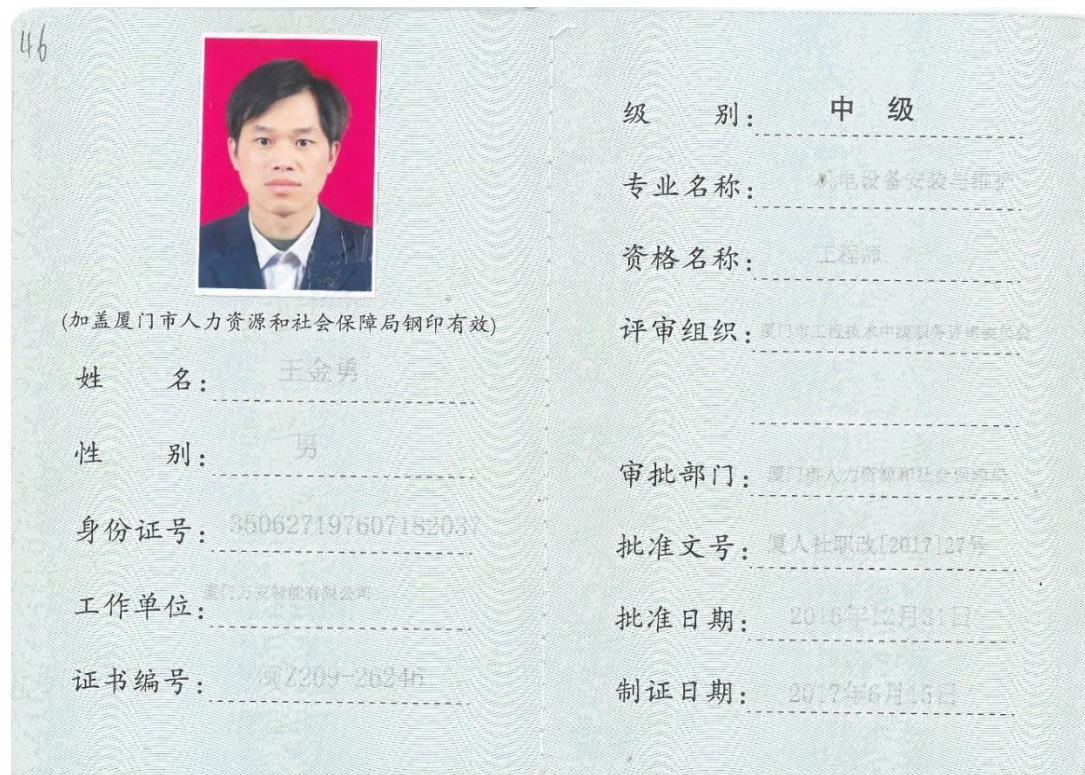 46
(加盖厦门市人力资源和社会保障局钢印有效)
姓 名: 王金勇
性 别: 男
身份证号: 350627197607182037
工作单位: 厦门万安智能有限公司
证书编号: 厦Z209-26246
级 别: 中 级
专业名称: 机电设备安装与维护
资格名称: 工程师
评审组织: 厦门市工程技术中级职务评审委员会
审批部门: 厦门市人力资源和社会保障局
批准文号: 厦人社职改[2017]27号
批准日期: 2016年12月31日
制证日期: 2017年6月15日